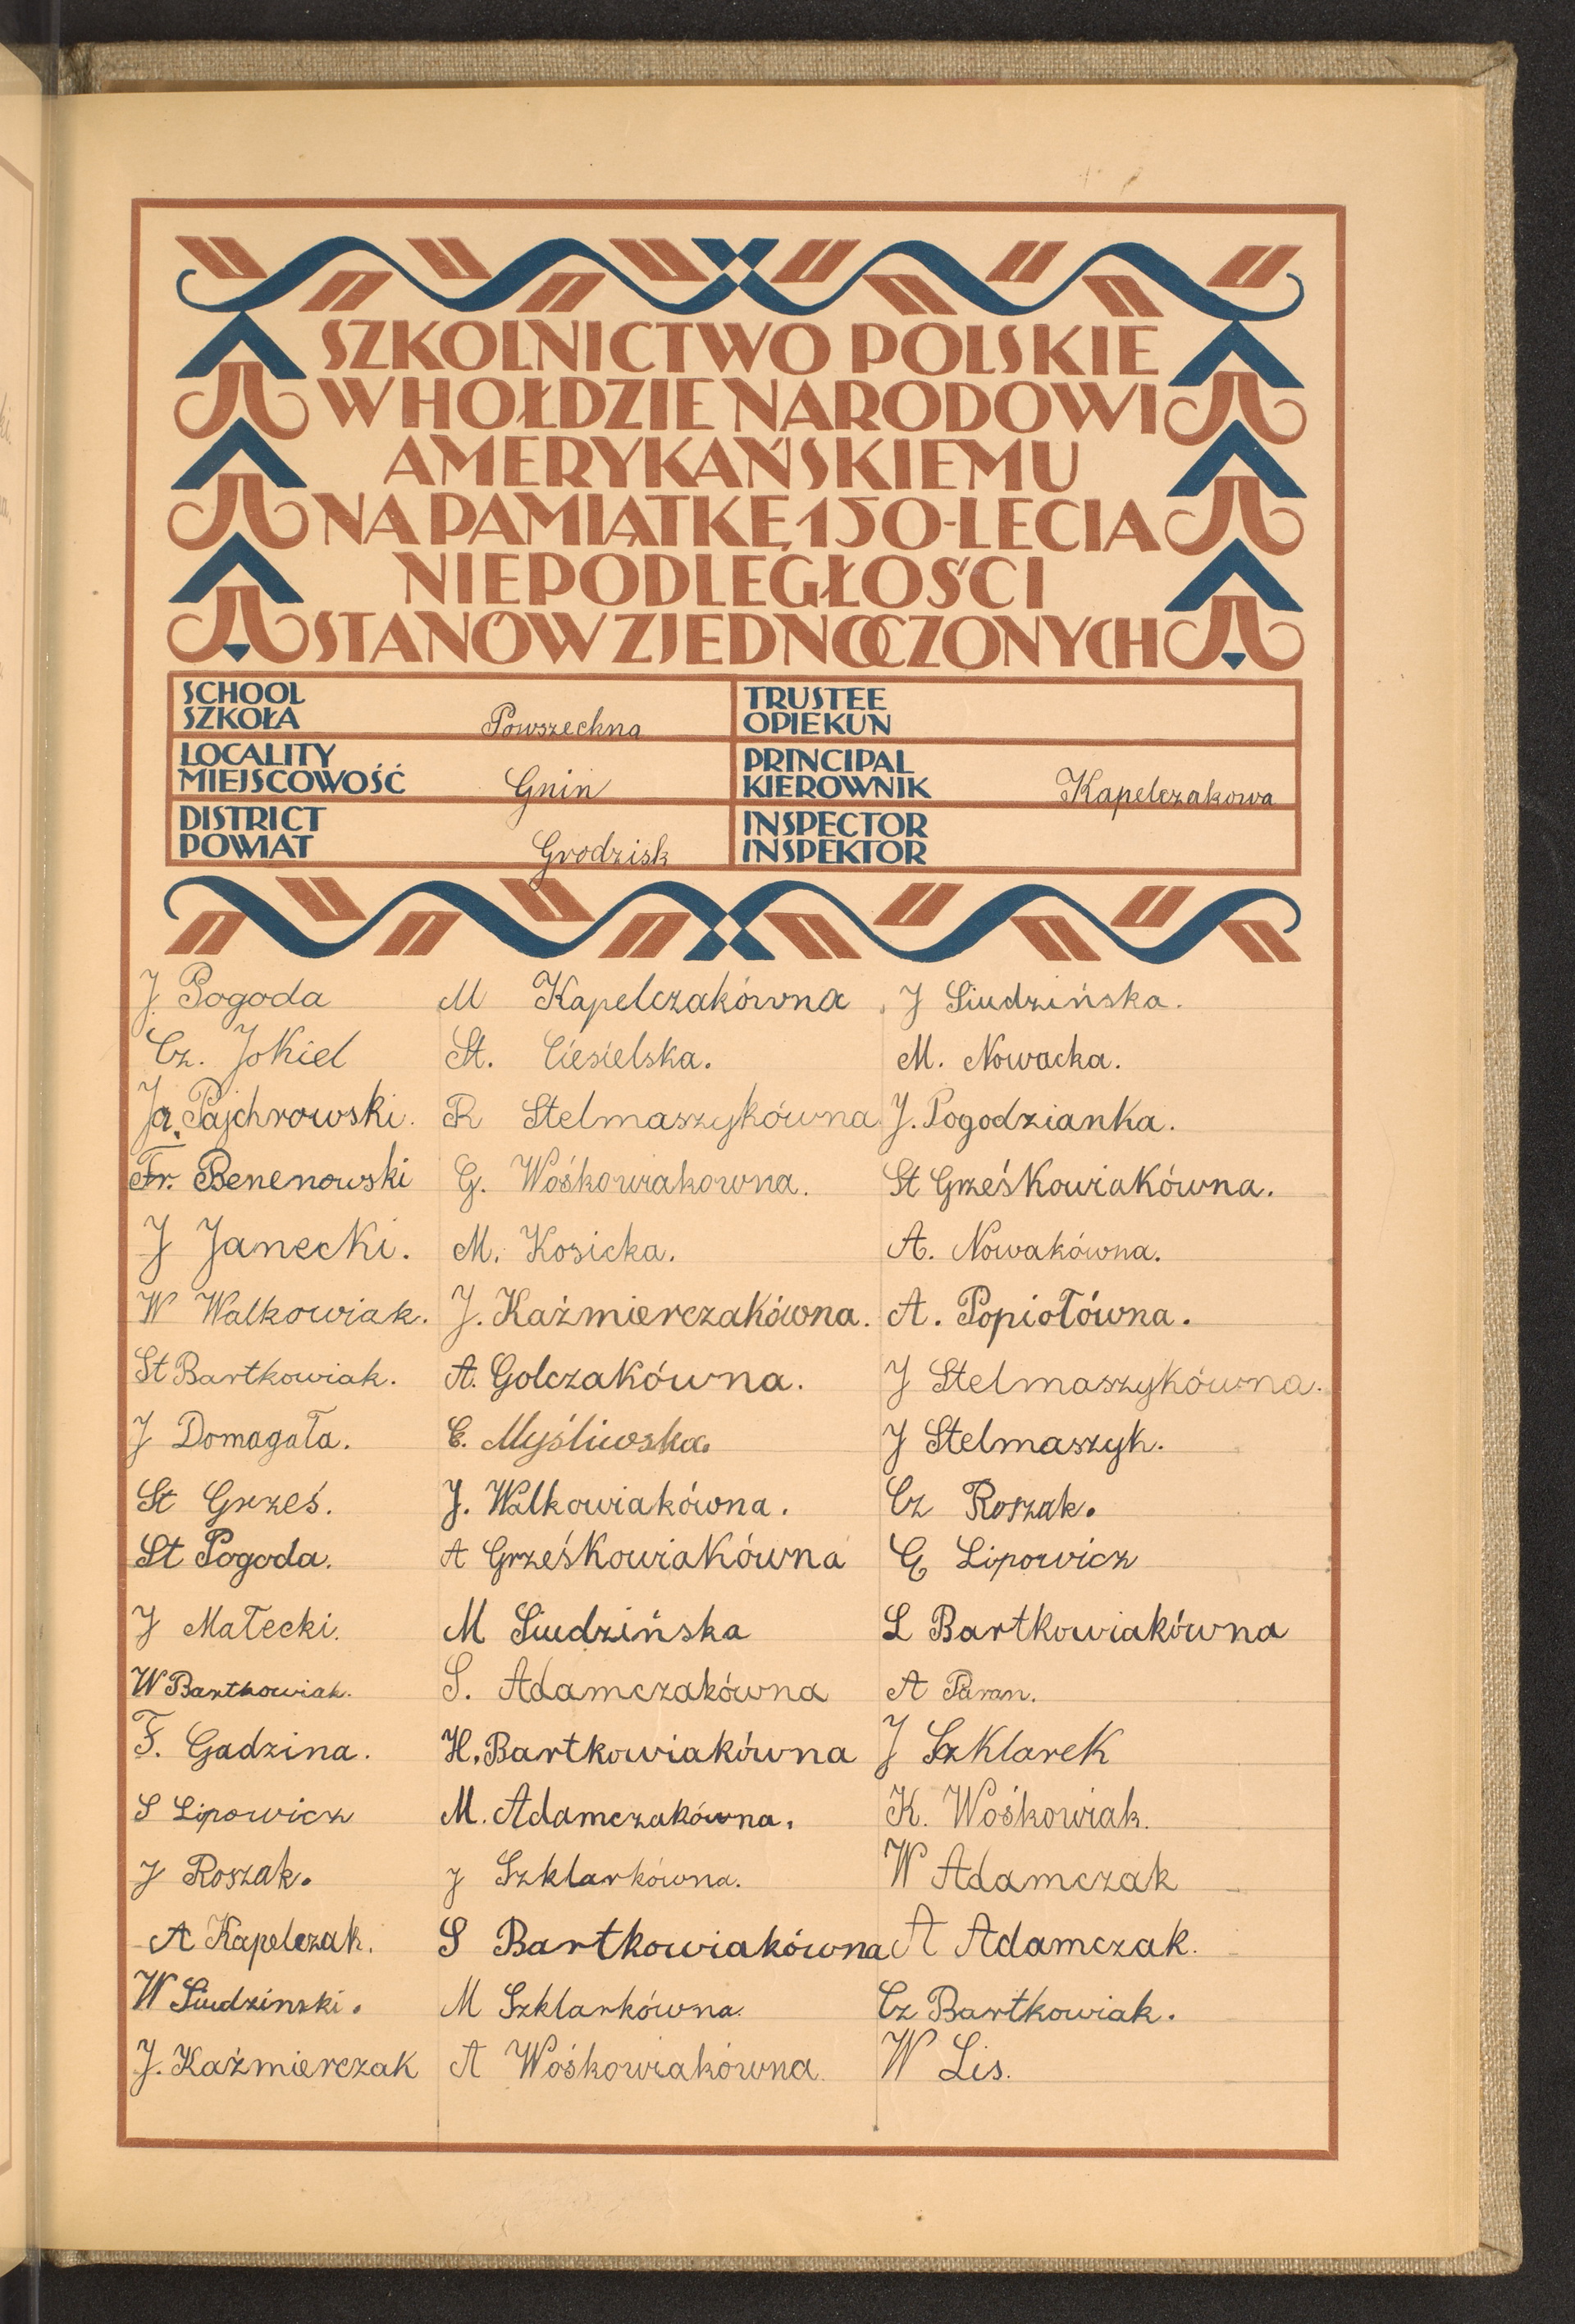 SZKOLNICTWO POLSKIE
W HOŁDZIE NARODOWI
AMERYKAŃSKIEMU
NA PAMIĄTKĘ 150-LECIA
NIEPODLEGŁOŚCI
STANÓW ZJEDNOCZONYCH
SCHOOL
SZKOŁA Powszechna
TRUSTEE
OPIEKUN
LOCALITY
MIEJSCOWOŚĆ Gnin
PRINCIPAL
KIEROWNIK Kapelczakowa
DISTRICT
POWIAT Grodzisk
INSPECTOR
INSPEKTOR
J Pogoda
Cz. Jokiel
Ja. Pajchrowski.
Fr. Benenowski
J Janecki.
W Walkowiak.
St Bartkowiak.
J Domagała.
St Grześ.
St Pogoda.
J Małecki.
W Bartkowiak.
F. Gadzina.
S Lipowicz
J Roszak.
A Kapelczak.
W Siudzinski.
J. Kaźmierczak
M Kapelczakówna
St. Ciesielska.
R Stelmaszykówna
G. Wośkowiakowna.
M. Kosicka.
J. Kaźmierczakówna.
A. Golczakówna.
C. Myśliwska.
J. Walkowiakówna.
A Grześkowiakówna
M Siudzińska
S. Adamczakówna
H. Bartkowiakówna
M. Adamczakówna.
J Szklarkówna.
S Bartkowiakówna
M Szklarkówna.
A Wośkowiakówna.
J Siudzińska.
M. Nowacka.
J. Pogodzianka.
St Grześkowiakówna.
A. Nowakówna.
A. Popiołówna.
J Stelmaszykówna.
J Stelmaszyk.
Cz Roszak.
G Lipowicz
L Bartkowiakówna
A Paran.
J Szklarek
K. Wośkowiak.
W Adamczak
A Adamczak.
Cz Bartkowiak.
W Lis.